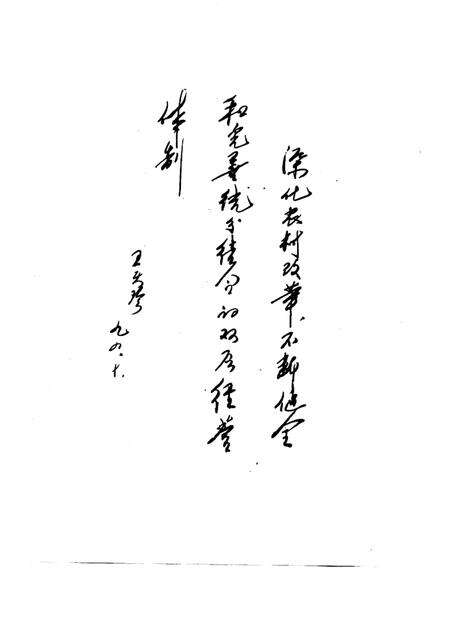 深化农村改革、不断健全
和完善统分结合的双层经营
体制
九〇、十、